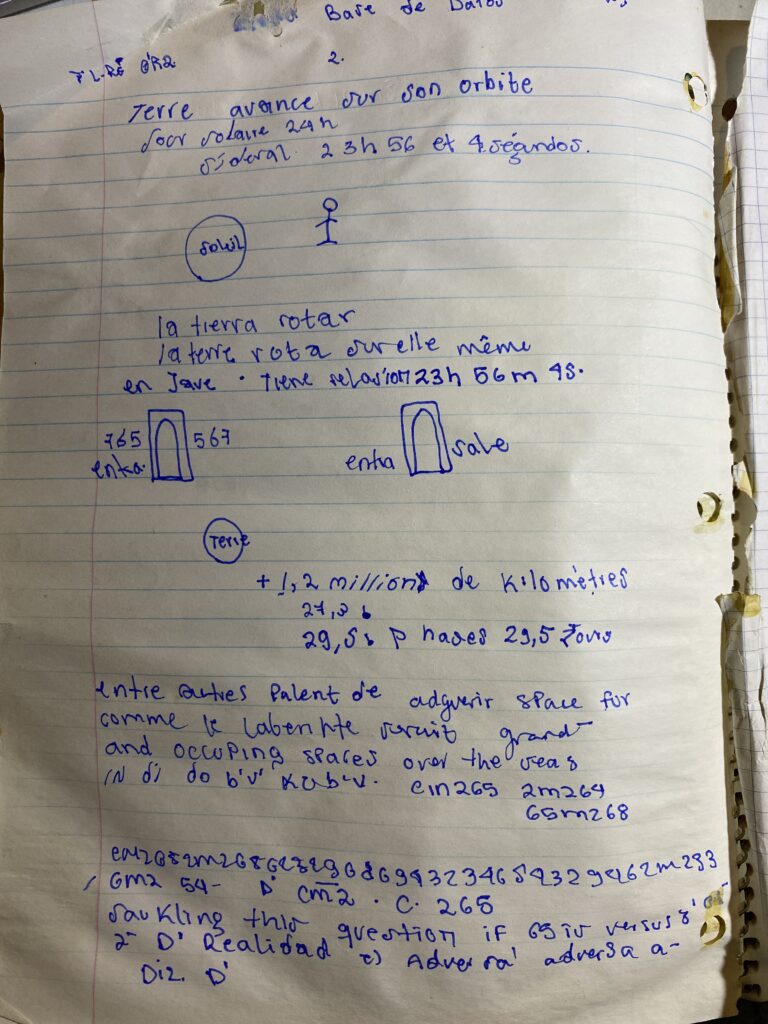 Base de Datos
2.
Terre avance sur son orbite
Jour solaire 24h
sideral. 23h 56 et 4 ségundos.
soleil
la tierra rotar
la terre rota sur elle même
en Jave. Tiene relasion 23h 56m 4s.
765 567
entra.
entra sale
Terre
+ 1,2 millions de Kilomètres
27,3
29,5 Phases 29,5 Jours
entre autres Palent de adquerir space for
comme le Laberinte seruit grand
and occuping spaces over the seas
IN di do b'v' KUb'v. ein265 2m264
65m268
6m2 54- D' cm2 . C. 265
this question if 65 is versus
2- D' Realidad c) Adversa' adversa a-
Diz. D'